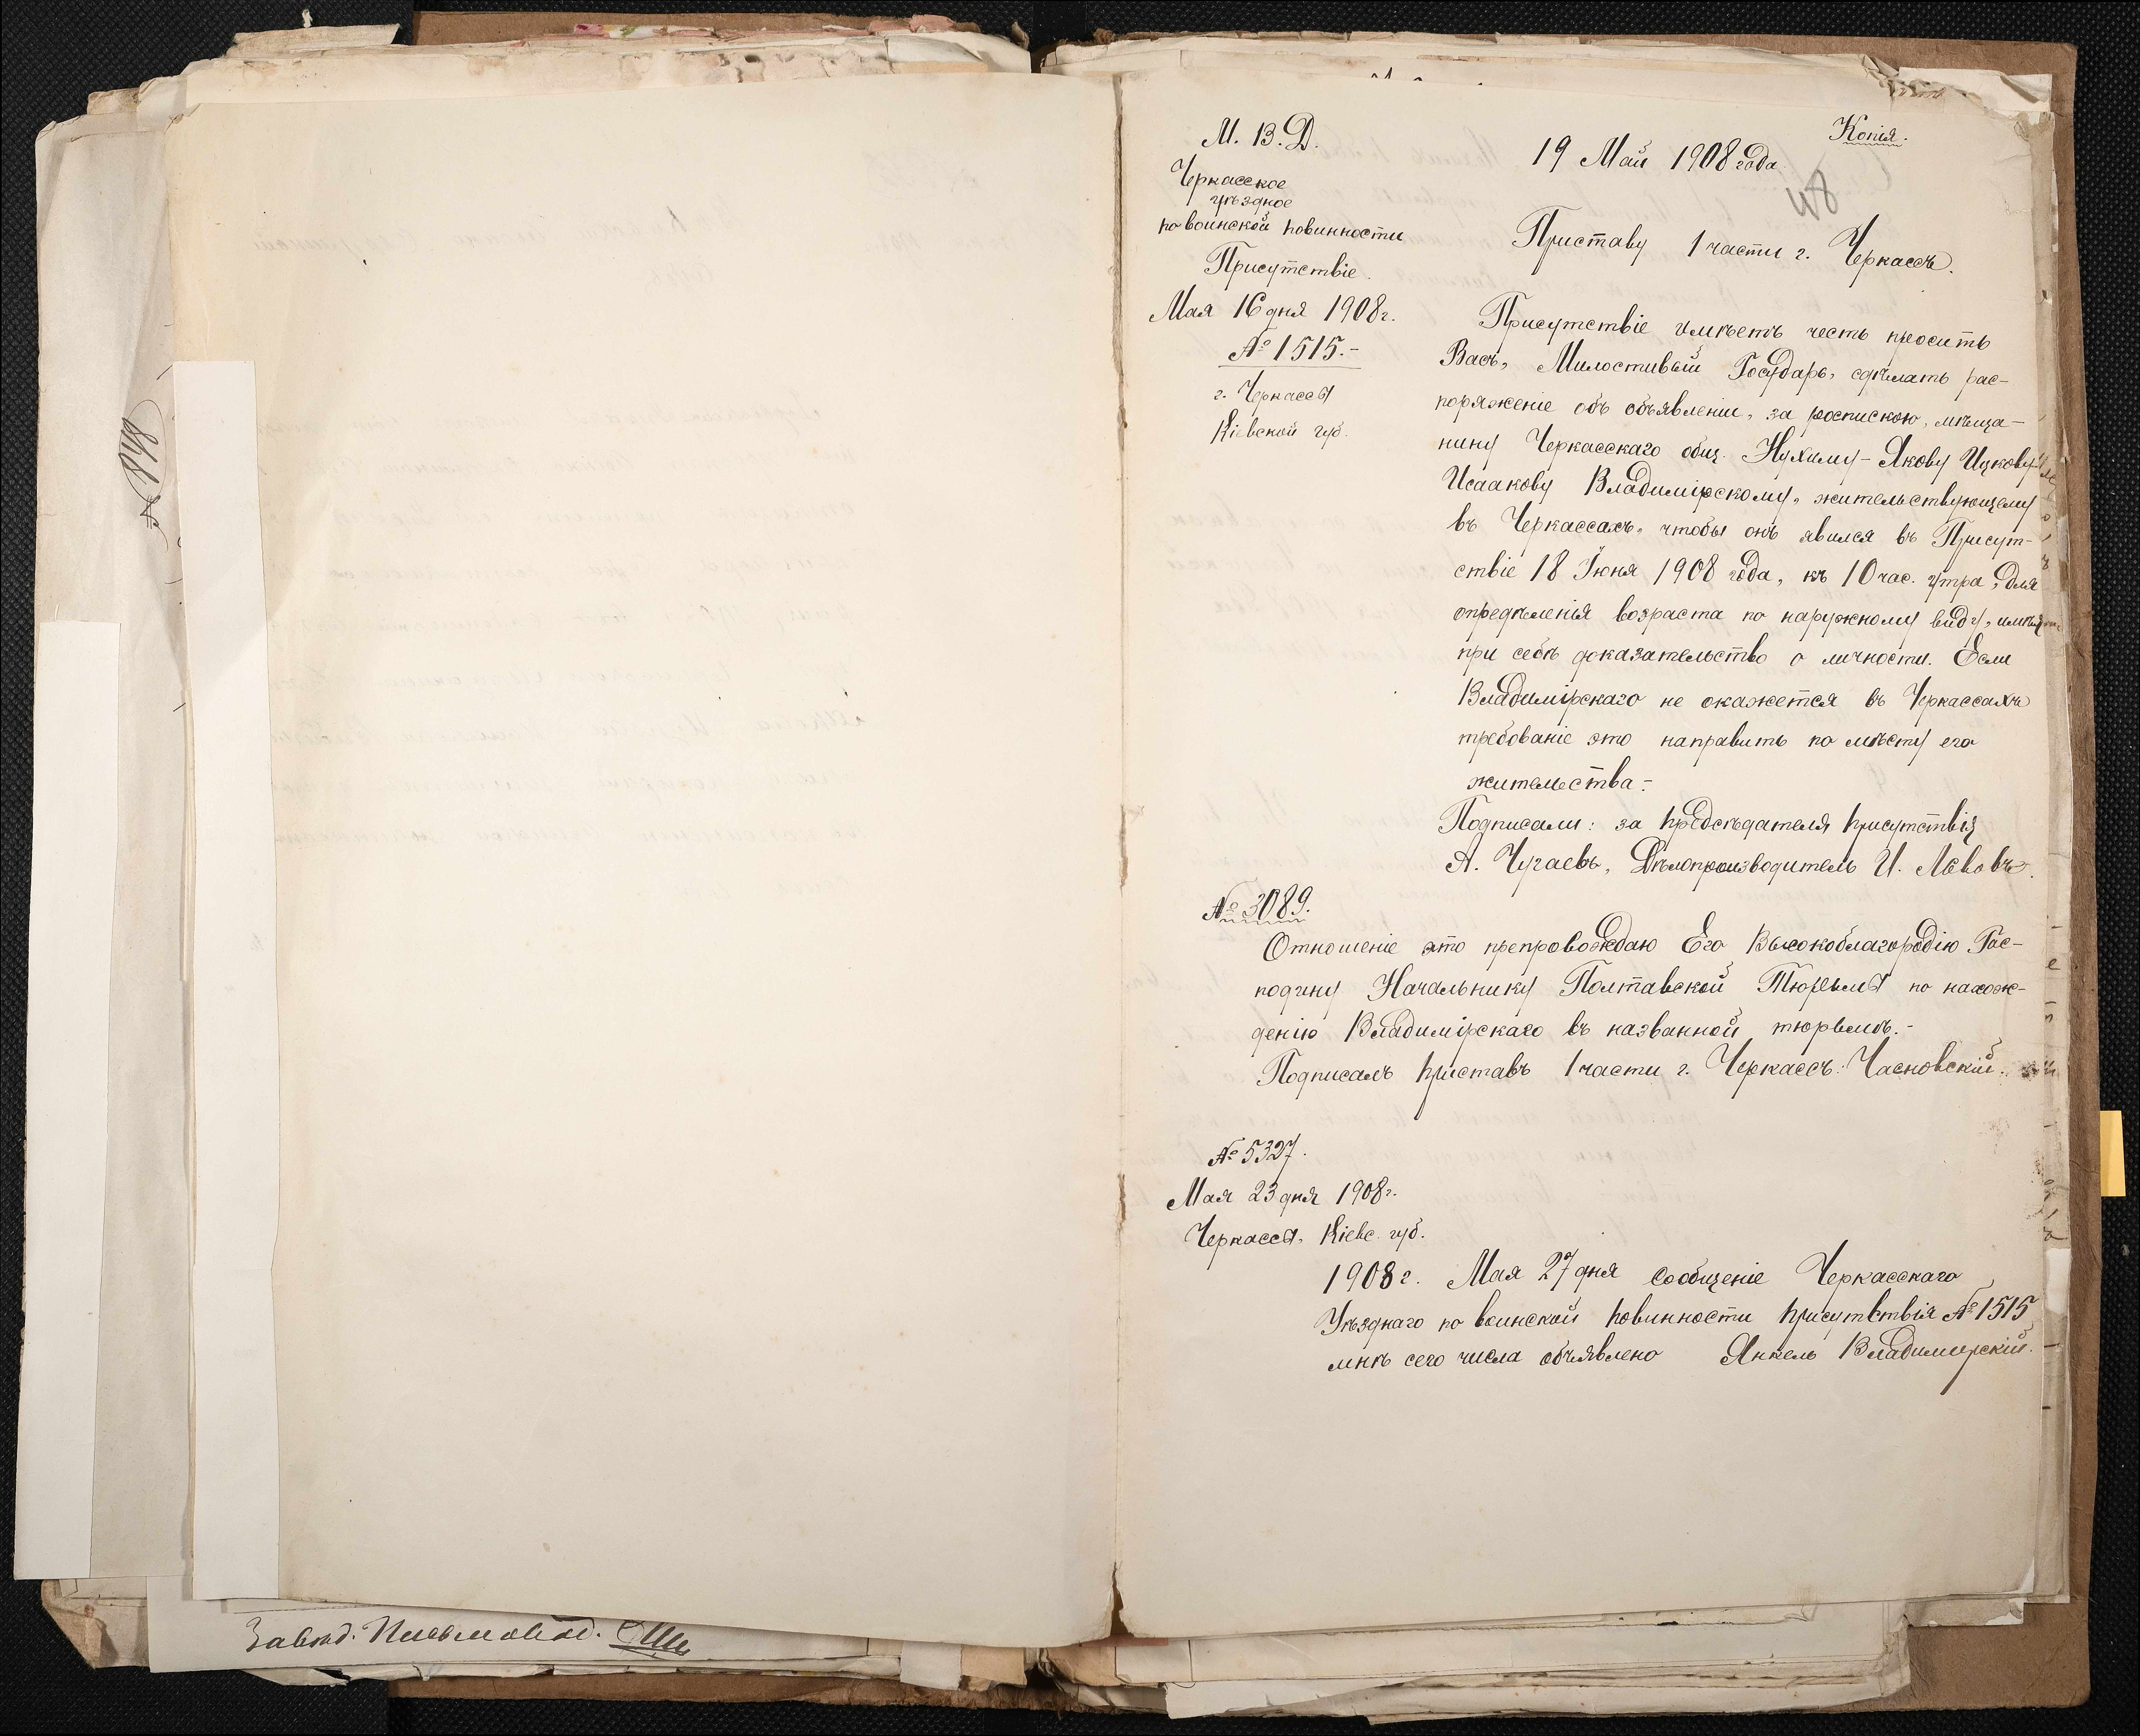 Копія.
М. В. Д.
19 Май 1908 года.
48
Черкасское
уѣздное
по воинской повинности
Присутствіе.
Мая 16 дня 1908 г.
№ 1515.-
г. Черкассы
Кіевской губ.
Приставу 1 части г. Черкассъ.
Присутствіе имѣетъ честь просить
Васъ, Милостивый Государь, сдѣлать рас-
поряженіе объ объявленіи, за роспискою, мѣща-
нину Черкасскаго общ. Нухиму-Якову Ицкову-
Исаакову Владимірскому, жительствующему
въ Черкассахъ, чтобы онъ явился въ Присут-
ствіе 18 Іюня 1908 года, къ 10 час. утра, для
опредѣленія возраста по наружному виду, имѣя
при себѣ доказательство о личности. Если
Владимірскаго не окажется въ Черкассахъ
требованіе это направить по мѣсту его
жительства.-
Подписали: за предсѣдателя присутствія
А. Чугаевъ, Дѣлопроизводитель И. Львовъ.
№ 3089.
Отношеніе это препровождаю Его Высокоблагородію Гос-
подину Начальнику Полтавской Тюрьмы по нахож-
денію Владимірскаго въ названной тюрьмѣ.-
Подписалъ приставъ 1 части г. Черкассъ: Часновскій.
№ 5327.
Мая 23 дня 1908 г.
Черкассы, Кіевс. губ.
1908 г. Мая 27 дня сообщеніе Черкасскаго
Уѣзднаго по воинской повинности присутствія № 1515
мнѣ сего числа объявлено Янкель Владимирскій.
Завѣд. Письмовод.